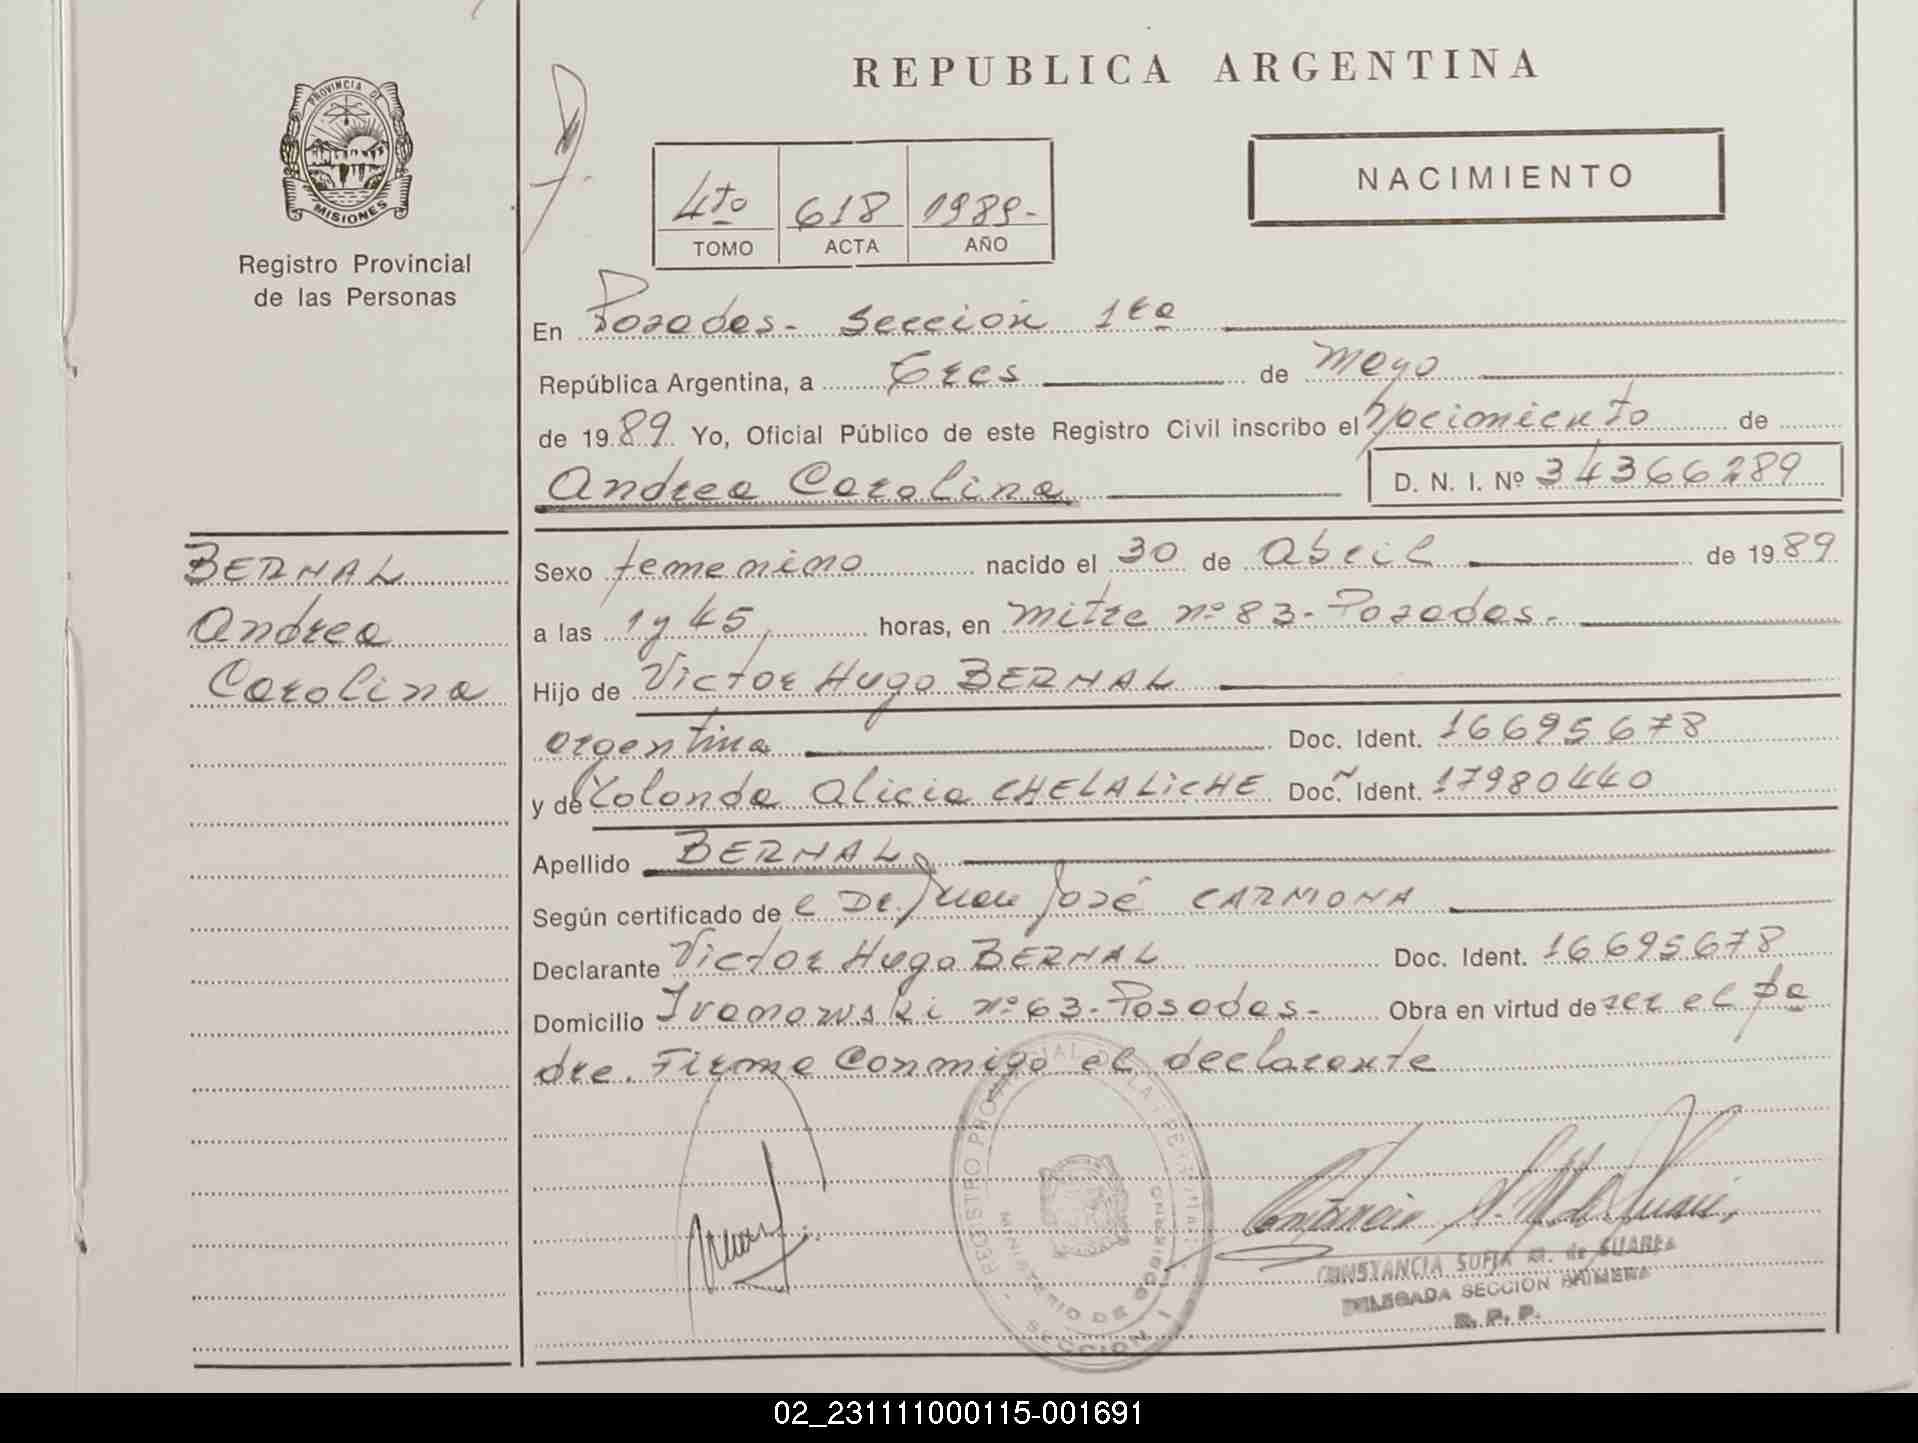 REPUBLICA ARGENTINA
PROVINCIA DE
MISIONES
Registro Provincial
de las Personas
NACIMIENTO
4to 618 1989-
TOMO ACTA AÑO
En Posadas- Sección 1ra
República Argentina, a tres de Mayo
de 1989 Yo, Oficial Público de este Registro Civil inscribo el Nacimiento de
Andrea Carolina D. N. I. Nº 34366289
BERNAL
Andrea
Carolina
Sexo femenino nacido el 30 de Abril de 1989
a las 1 y 45, horas, en Mitre nº 83- Posadas.-
Hijo de Victor Hugo BERNAL
argentina Doc. Ident. 16695678
y de Yolanda Alicia CHELALICHE Doc. Ident. 17980440
Apellido BERNAL
Según certificado de el Dr. Juan José CARMONA
Declarante Victor Hugo BERNAL Doc. Ident. 16695678
Domicilio Ivanowski nº 63- Posadas- Obra en virtud de ser el pa
dre. Firma Conmigo el declarante
REGISTRO PROVINCIAL DE LAS PERSONAS
MINISTERIO DE GOBIERNO
SECCION 1
CONSTANCIA SOFIA M. de SUAREZ
DELEGADA SECCION PRIMERA
R. P. P.
02_231111000115-001691